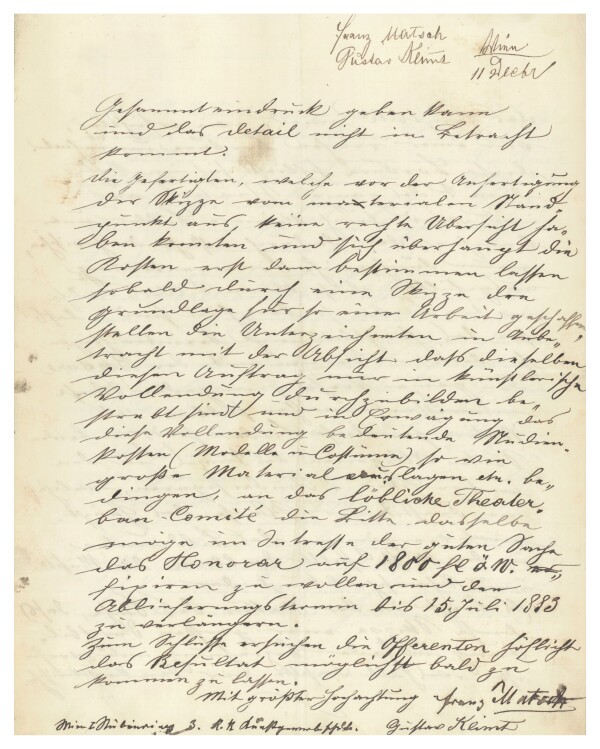 Franz Matsch
Gustav Klimt
Wien
11 Decbr
Gesammteindruck geben kann
und das Detail nicht in Betracht
kommt.
Die Gefertigten, welche vor der Anfertigung
der Skizze vom materialen Stand-
punkt aus, keine rechte Übersicht ha-
ben konnten und sich überhaupt die
Kosten erst dann bestimmen lassen
sobald durch eine Skizze die
Grundlage für so eine Arbeit geschaffen,
stellen die Unterzeichneten in Anbe-
tracht mit der Absicht dass dieselben
diesen Auftrag nur in künstlerische
Vollendung durchzubilden be-
strebt sind und in Erwägung das
diese Vollendung bedeutende Studien-
kosten (Modelle u Costume) so wie
große Materialauslagen etc. be-
dingen, an das löbliche Theater-
bau-Comité die Bitte dasselbe
möge im Intresse der guten Sache
das Honorar auf 1800 fl ö. W.
fixiren zu wollen und den
Ablieferungstermin bis 15. Juli 1883
zu verlängern.
Zum Schluße ersuchen die Offerenten höflichst
das Resultat möglichst bald zu
kommen zu lassen.
Mit größter Hochachtung Franz Matsch
Wien I Stubenring 3. K. K. Kunstgewerbeschule. Gustav Klimt